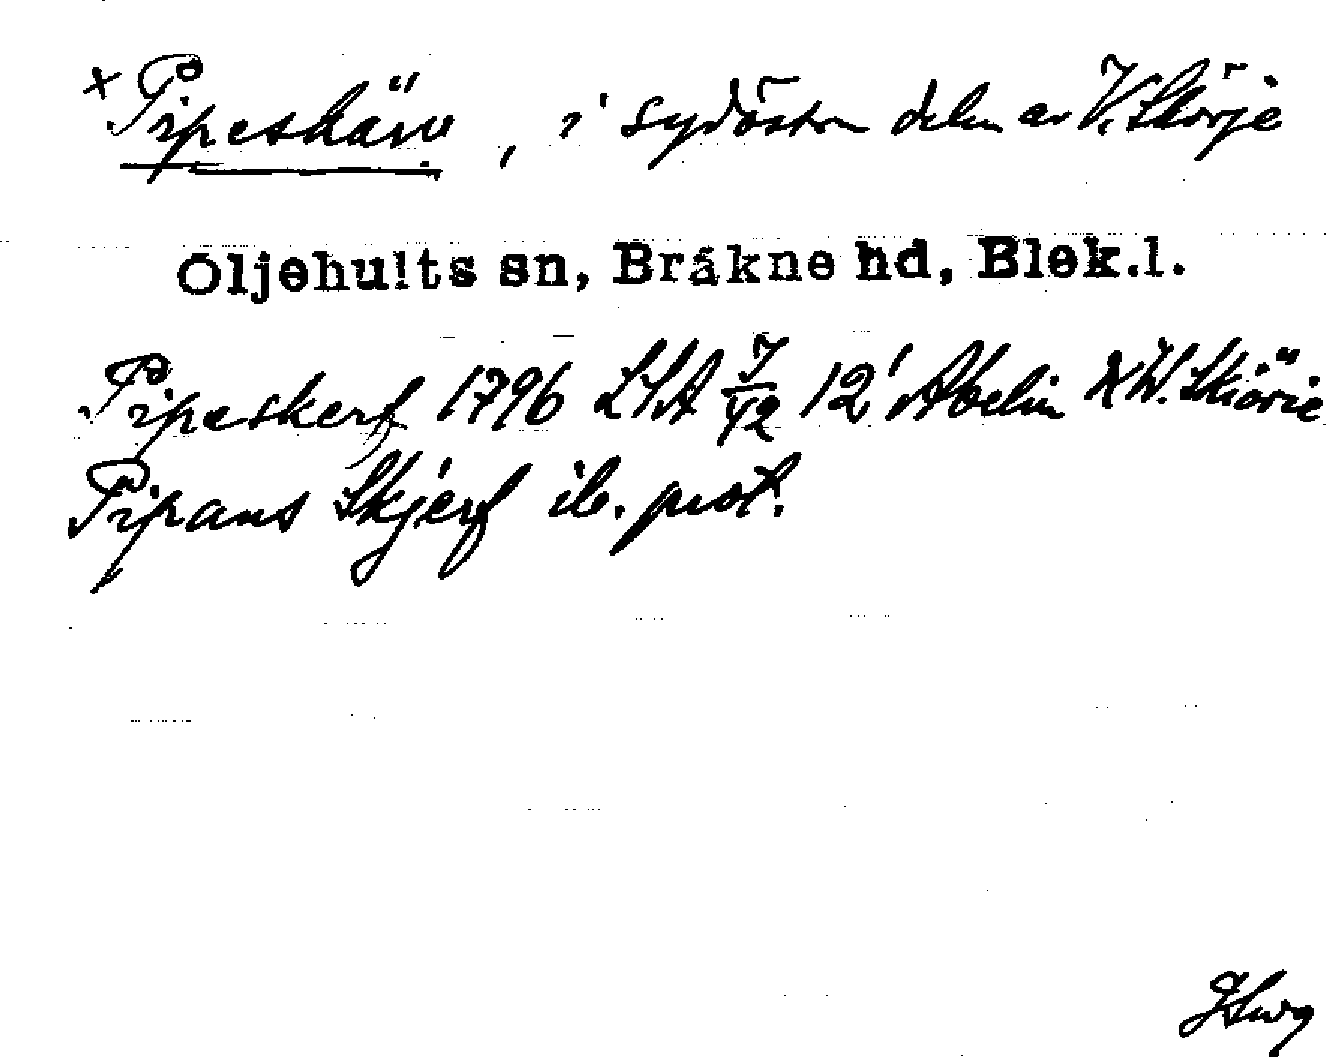 + Pipeskärv, i sydöstra delen av V. Skörje
Öljehults sn, Bräkne hd, Blek.l.
Pipeskerf 1796 LSA J/42 12' Abelin X W. Skiörie
Pipans Skjerf ib. prot.